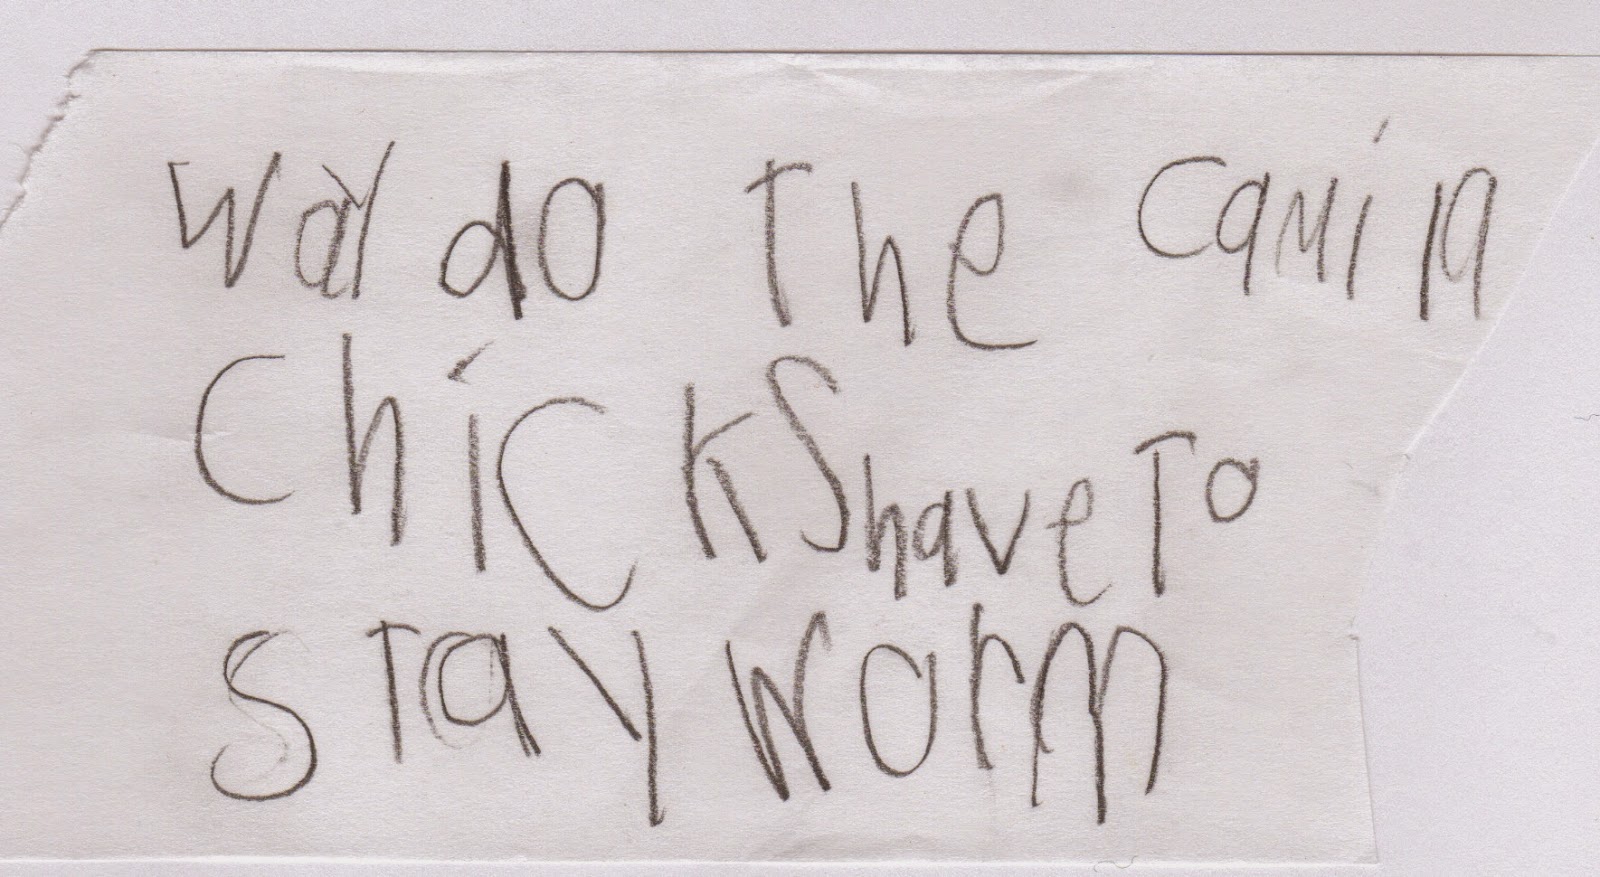 way do The camin
chicks have To
sTay worm